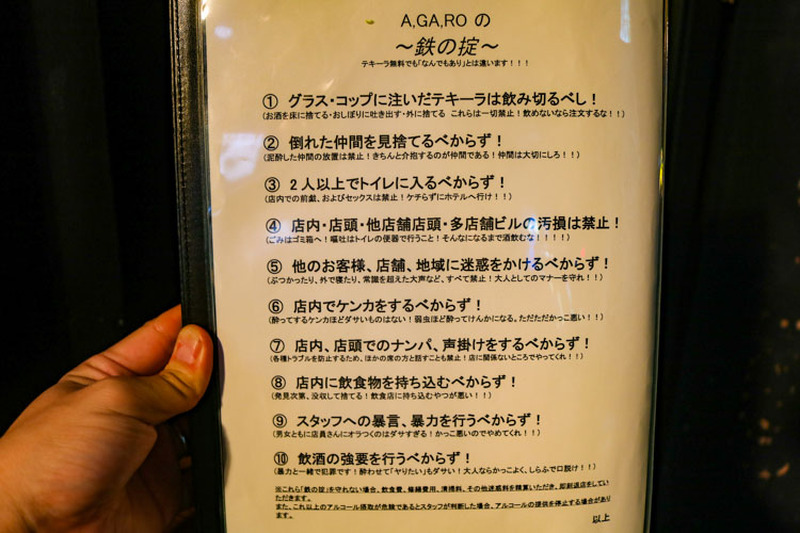 A,GA,RO の
～鉄の掟～
テキーラ無料でも「なんでもあり」とは違います！！！
① グラス・コップに注いだテキーラは飲み切るべし！
（お酒を床に捨てる・おしぼりに吐き出す・外に捨てる これらは一切禁止！飲めないなら注文するな！！）
② 倒れた仲間を見捨てるべからず！
（泥酔した仲間の放置は禁止！きちんと介抱するのが仲間である！仲間は大切にしろ！！）
③ 2人以上でトイレに入るべからず！
（店内での前戯、およびセックスは禁止！ケチらずにホテルへ行け！！）
④ 店内・店頭・他店舗店頭・多店舗ビルの汚損は禁止！
（ごみはゴミ箱へ！嘔吐はトイレの便器で行うこと！そんなになるまで酒飲むな！！！！）
⑤ 他のお客様、店舗、地域に迷惑をかけるべからず！
（ぶつかったり、外で寝たり、常識を超えた大声など、すべて禁止！大人としてのマナーを守れ！！）
⑥ 店内でケンカをするべからず！
（酔ってするケンカほどダサいものはない！弱虫ほど酔ってけんかになる。ただただかっこ悪い！！）
⑦ 店内、店頭でのナンパ、声掛けをするべからず！
（各種トラブルを防止するため、ほかの席の方と話すことも禁止！店に関係ないところでやってくれ！！）
⑧ 店内に飲食物を持ち込むべからず！
（発見次第、没収して捨てる！飲食店に持ち込むやつが悪い！！）
⑨ スタッフへの暴言、暴力を行うべからず！
（男女ともに店員さんにオラつくのはダサすぎる！かっこ悪いのでやめてくれ！！）
⑩ 飲酒の強要を行うべからず！
（暴力と一緒で犯罪です！酔わせて「ヤりたい」もダサい！大人ならかっこよく、しらふで口説け！！）
※これら「鉄の掟」を守れない場合、飲食費、修繕費用、清掃料、その他迷惑料を精算いただき、即刻退店をしてい
ただきます。
また、これ以上のアルコール摂取が危険であるとスタッフが判断した場合、アルコールの提供を停止する場合があり
ます。
以上